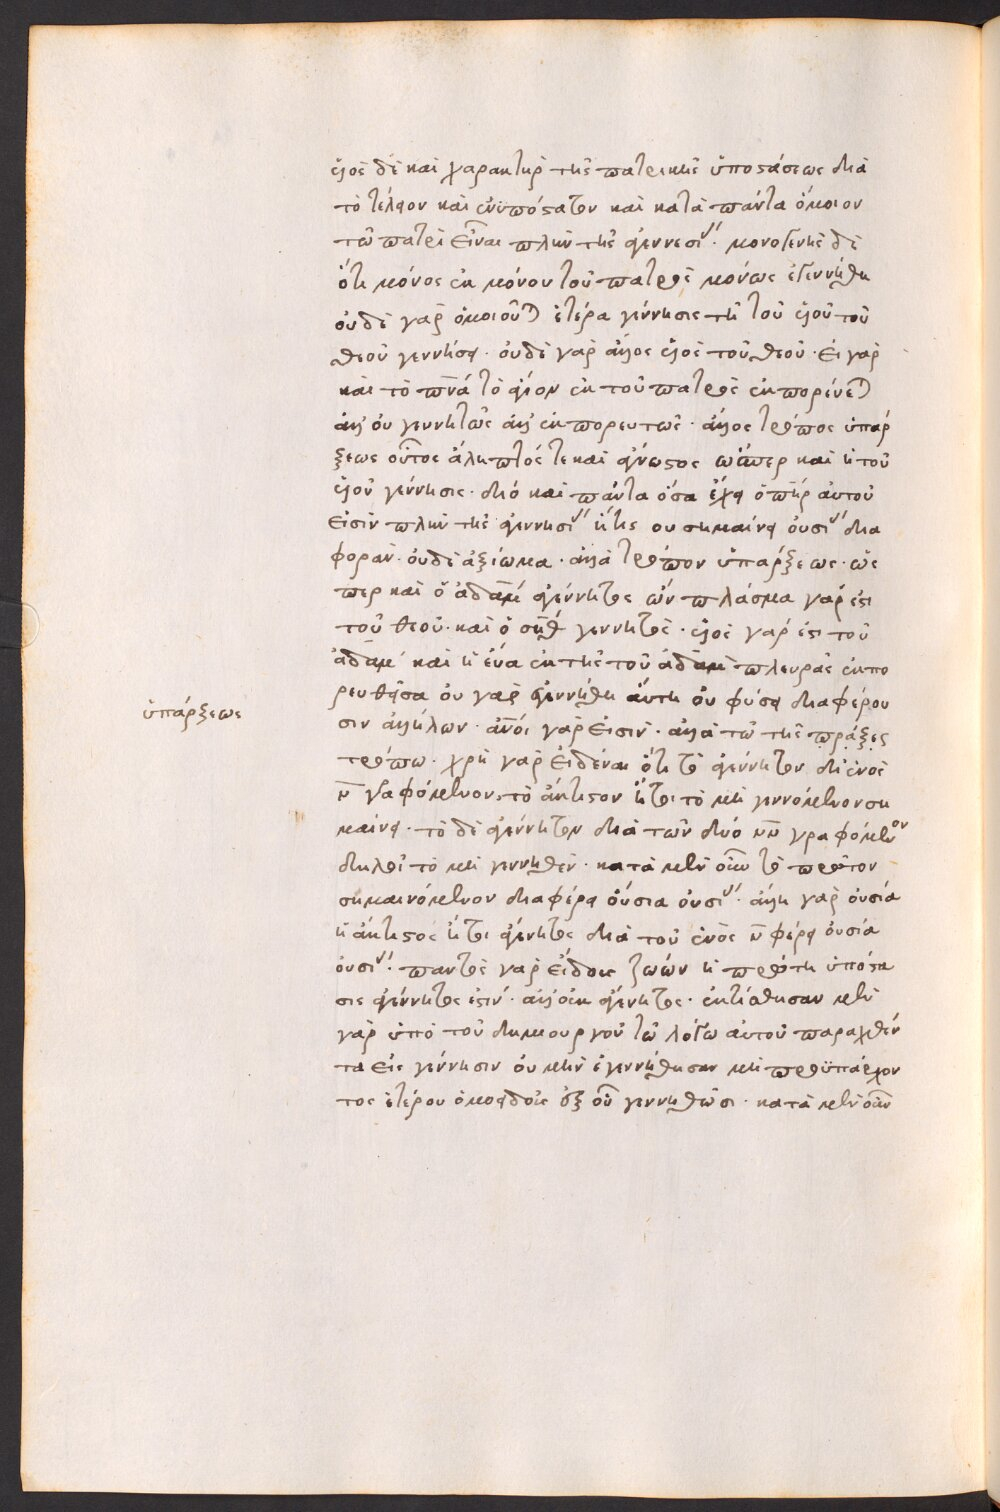 υἱὸς δὲ καὶ χαρακτὴρ τῆς πατρικῆς ὑποστάσεως διὰ
τὸ τέλειον καὶ ἐνϋπόστατον καὶ κατὰ πάντα ὅμοιον
τῶ πατρὶ εἶναι πλὴν τῆς ἀγεννεσί. μονογενὴς δὲ
ὅτι μόνος ἐκ μόνου τοῦ πατρὸς μόνως ἐγεννήθη
οὐδὲ γὰρ ὁμοιοῦται ἑτέρα γέννησις τῆ τοῦ υἱοῦ τοῦ
θεοῦ γεννήσει. οὐδὲ γὰρ ἄλλος υἱὸς τοῦ θεοῦ. εἰ γὰρ
καὶ τὸ πνα τὸ ἅγιον ἐκ τοῦ πατρὸς ἐκπορεύεται
ἀλλ οὐ γεννητῶς ἀλλ ἐκπορευτῶς. ἄλλος τρόπος ὑπάρ
ξεως οὗτος ἄληπτός τε καὶ ἄγνωστος ὥσπερ καὶ ἡ τοῦ
υἱοῦ γέννησις. διό καὶ πάντα ὅσα ἔχει ὁ πηρ αὐτοῦ
εἰσὶν πλὴν τῆς ἀγεννησί ἥτις ου σημαίνει οὐσί δια
φοράν. οὐδὲ ἀξίωμα. ἀλλὰ τρόπον ὑπάρξεως. ὡς
περ καὶ ὁ ἀδὰμ ἀγέννητος ὢν πλάσμα γάρ ἐστι
τοῦ θεοῦ. καὶ ὁ σὴθ γεννητὸς. υἱὸς γάρ ἐστι τοῦ
ἀδὰμ καὶ ἡ ἔυα ἐκ τῆς τοῦ ἀδὰμ πλευρᾶς ἐκπο
ρευθεῖσα οὐ γὰρ ἐγεννήθη αὕτη οὐ φύσει διαφέρου
σιν ἀλλήλων. ἄνοι γὰρ εἰσὶν. ἀλλὰ τῶ τῆς πράξεις
ὑπάρξεως
τρόπω. χρὴ γὰρ εἰδέναι ὅτι τὸ ἀγέννητον δι' ἑνὸς
ν γραφόμενον. τὸ ἄκτιστον ἤτοι τὸ μὴ γενόμενον ση
μαίνει. τὸ δὲ ἀγέννητον διὰ τῶν δύο νν γραφόμενον
δηλοῖ τὸ μὴ γεννηθέν. κατὰ μὲν οὖν τὸ πρῶτον
σημαινόμενον διαφέρει οὐσια οὐσί. ἄλλη γὰρ οὐσία
ἡ ἄκτιστος ἤτοι ἀγένητος διὰ τοῦ ἑνὸς ν φέρει οὐσία
οὐσί. παντὸς γὰρ εἴδους ζώων ἡ πρώτη ὑπόστα
σις ἀγέννητος ἐστίν. ἀλλ' οὐκ ἀγένητος. ἐκτίσθησαν μὲν
γὰρ ὑπὸ τοῦ δημιουργοῦ τῶ λόγω αὐτοῦ παραχθέν
τα εἰς γέννησιν οὐ μὴν ἐγεννήθησαν μὴ προϋπάρχον
τος ἑτέρου ὁμοειδοῦς ἐξ οὗ γεννηθῶσι. κατὰ μὲν οὖν